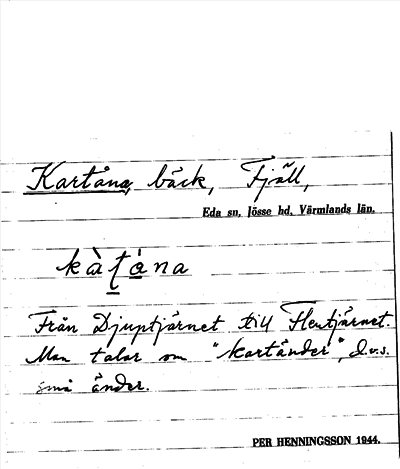 Kartåna, bäck, Fjäll,
Eda sn, Jösse hd, Värmlands län.
kàṭána
Från Djuptjärnet till Flentjärnet.
Man talar om "kartånder", d.v.s.
små ånder.
PER HENNINGSSON 1944.